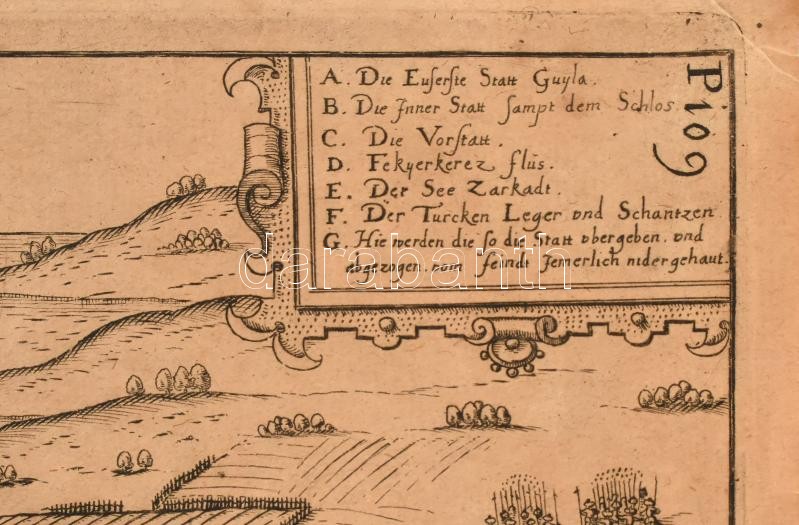 A. Die Euserste Statt Guyla.
B. Die Inner Statt sampt dem Schlos
C. Die Vorstatt.
D. Fekyerkerez flus.
E. Der See Zarkadt.
F. Der Turcken Leger vnd Schantzen
G. Hie werden die so die Statt vbergeben. vnd
abgezogen. vom feindt Jemerlich nidergehaut.
P109
darabanth